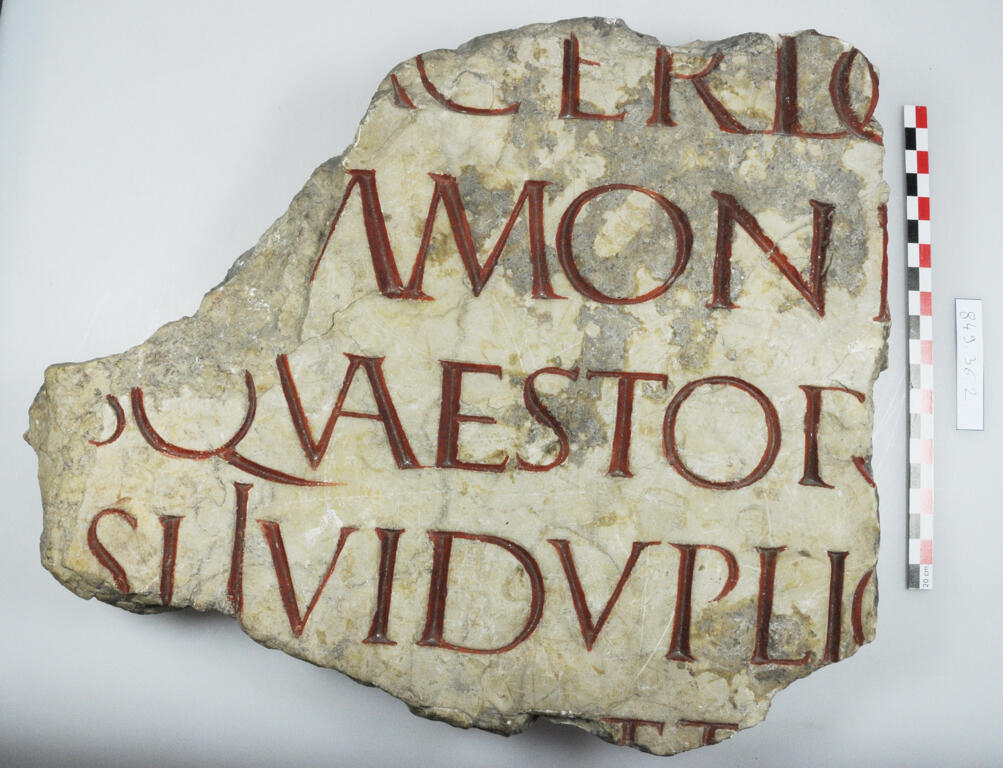 ACERDO
AMON
SQVAESTOR
SIIVIDVPLIC
849 362
20 cm